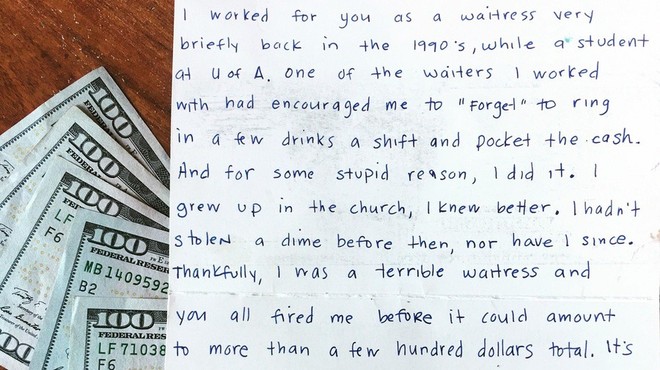 I worked for you as a waitress very
briefly back in the 1990's, while a student
at U of A. One of the waiters I worked
with had encouraged me to "Forget" to ring
in a few drinks a shift and pocket the cash.
And for some stupid reason, I did it. I
grew up in the church, I knew better. I hadn't
stolen a dime before then, nor have I since.
Thankfully, I was a terrible waitress and
you all fired me before it could amount
to more than a few hundred dollars total. It's
100
100
LF
F6
100
FEDERAL RESER
MB1409592
B2
100
FEDERAL RES
LF71038
F6